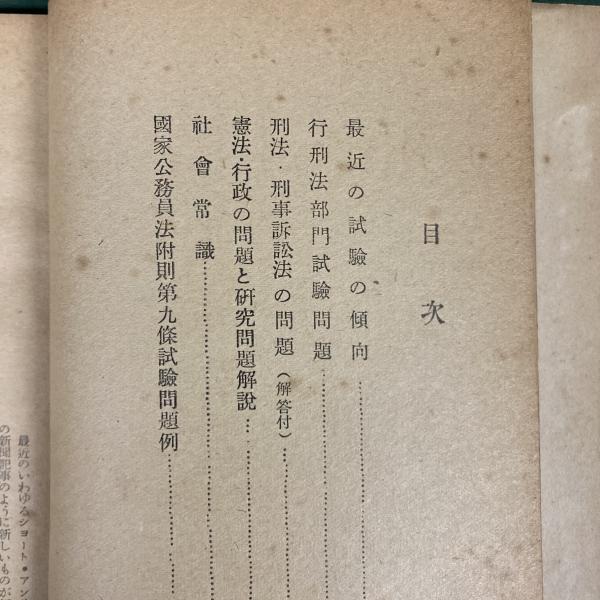 目次
最近の試驗の傾向
行刑法部門試驗問題
刑法・刑事訴訟法の問題（解答付）
憲法・行政の問題と硏究問題解說
社會常識
國家公務員法附則第九條試驗問題例
最近のいわゆるショート・アン
の新聞記事のように新しいものが